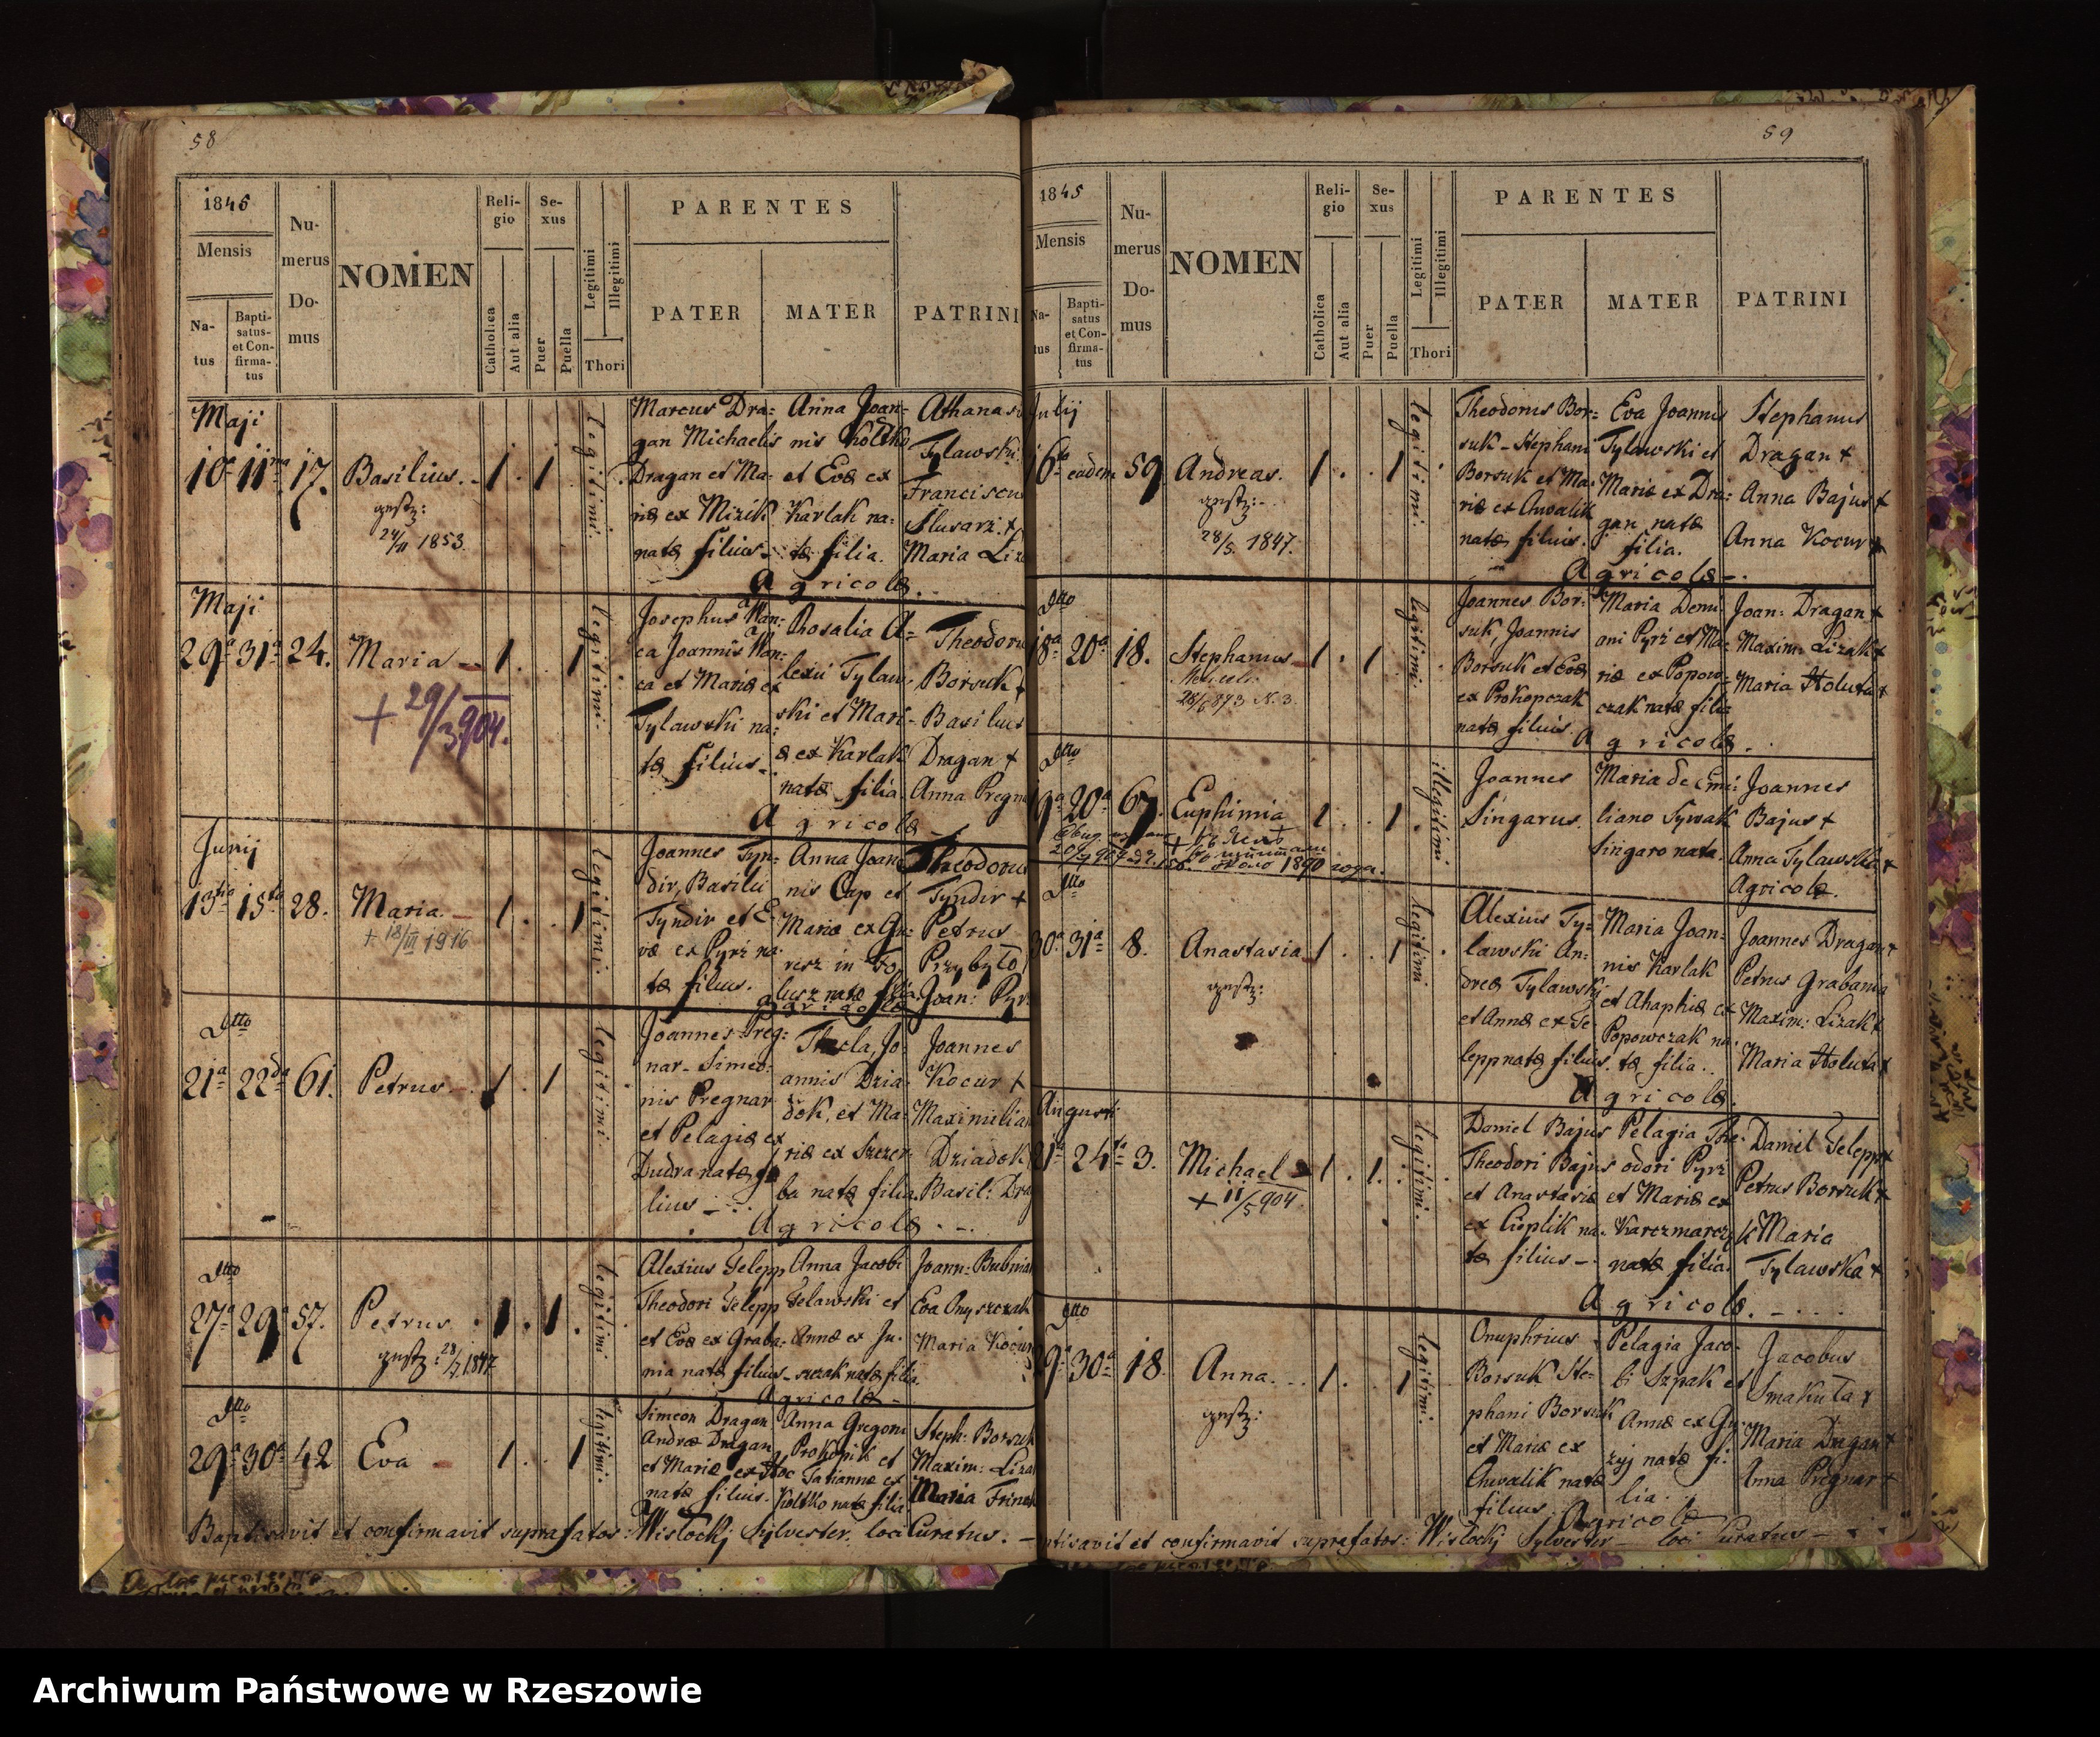 58
1845
Mensis
Na-
tus
Bapti-
satus-
et Con-
firma-
tus
Nu-
merus
Do-
mus
NOMEN
Reli-
gio
Catholica
Aut alia
Se-
xus
Puer
Puella
Legitimi
Illegitimi
Thori
PARENTES
PATER
MATER
PATRINI
Maji
10a 11ma 17. Basilius. 1 . 1
1853.
legitimi.
Marcus Dra=
gan Michaelis
Dragan et Ma-
riæ ex Mizik
natæ filius.
Anna Joan=
nis Koltko
et Evæ ex
Karlak na-
tæ filia.
Athanas
Tylawski
Franciscus
Slusarz +
Maria Liz
Agricolæ.
Maji
29a 31a 24. Maria 1 . . 1
+ 29/3 904.
legitimi.
Josephus Wan=
ca Joannis Wan=
ca et Mariæ ex
Tylawski na=
tæ filius.
Rosalia A=
lexii Tylaw=
ski et Mari-
æ ex Karlak
natæ filia.
Theodoru
Borsuk +
Basilius
Dragan +
Anna Pregn
Agricolæ
Junij
13tia 15ta 28. Maria. 1 . . 1
+ 18/III 1916
legitimi.
Joannes Tyn=
dir, Basilii
Tyndir et E-
væ ex Pyrz na-
tæ filius.
Anna Joan
nis Cap et
Mariæ ex Gu=
risz in To,
lusz natæ filia.
Theodorus
Tyndir +
Petrus
Przybyło
Joan: Pyr
Agricolæ
Dtto
21a 22da 61. Petrus 1 . 1
legitimi.
Joannes Preg=
nar- Simeo=
nis Pregnar
et Pelagiæ ex
Dudra natæ fi
lius
Thecla, Jo-
annis Dzia-
dok, et Ma-
riæ ex Szczer-
ba natæ filia.
Joannes
Kocur +
Maximilian
Dziadok
Basil: Dra
Agricolæ.
Dtto
27a 29a 57. Petrus . 1 . 1 .
28/7 1847
legitimi
Alexius Telepp
Theodori Telepp
et Evæ ex Graba-
nia natæ filius
Anna Jacobi
Telawski et
Annæ ex Ju-
szczak natæ filia.
Joann: Bubniak
Eva Onyszczak
Maria Kocur
Agricolæ
Dtto
29a 30a 42 Eva 1 . . 1
legitimi.
Simeon Dragan
Andreæ Dragan
et Mariæ ex Hoc
natæ filius.
Anna Gregorii
Prokopik et
Tatiannæ ex
Koltko natæ filia
Steph: Borsuk
Maxim: Liza
Maria Frinch
Baptisavit et confirmavit suprafatos: Wisłockj Sylvester, loci Curatus.
59
1845
Mensis
Na-
tus
Bapti-
satus
et Con-
firma-
tus
Nu-
merus
Do-
mus
NOMEN
Reli-
gio
Catholica
Aut alia
Se-
xus
Puer
Puella
Legitimi
Illegitimi
Thori
PARENTES
PATER
MATER
PATRINI
Julij
16ta eadem 59 Andreas. 1 . . 1
28/5 1847.
legitimi.
Theodorus Bor=
suk - Stephani
Borsuk et Ma-
riæ ex Chwalik
natæ filius.
Eva Joannis
Tylawski et
Mariæ ex Dra=
gan natæ
filia.
Stephanus
Dragan +
Anna Bajus +
Anna Kocur +
Agricolæ.
Dtto
18a 20a 18. Stephanus 1 . 1
28/6 873 N. 3.
legitimi.
Joannes Bor-
suk Joannis
Borsuk et Evæ
ex Prokopczak
natæ filius.
Maria Demi
ani Pyrz et Ma=
riæ ex Popow-
czak natæ filia
Joan: Dragan +
Maxim: Lizak +
Maria Holuta +
Agricolæ.
Dtto
19a 20a 67. Euphimia 1 . . 1 .
1890 года.
illegitimi
Joannes
Singarus.
Maria de Emi=
liano Sywak
Singaro nata.
Joannes
Bajus +
Anna Tylawska +
Agricolæ.
Dtto
30a 31a 8. Anastasia 1 . . 1
legitimi
Alexius Ty=
lawski An-
dreæ Tylawski
et Annæ ex Te-
lepp natæ filius.
Maria Joan=
nis Karlak
et Ahaphiæ ex
Popowczak na-
tæ filia.
Joannes Dragan +
Petrus Grabania
Maxim: Lizak +
Maria Holuta +
Agricolæ.
Augusti
21a 24ta 3. Michael 1 . 1 .
+ 11/5 904
legitimi.
Daniel Bajus
Theodori Bajus
et Anastasiæ
ex Cieplik na-
tæ filius
Pelagia The-
odori Pyrz
et Mariæ ex
Karczmarczyk
natæ filia.
Daniel Telepp +
Petrus Borsuk +
Maria
Tylawska +
Agricolæ.
Dtto
29a 30a 18. Anna. 1 . . 1
legitimi.
Onuphrius
Borsuk Ste-
phani Borsuk
et Mariæ ex
Chwalik natæ
filius.
Pelagia Jaco-
bi Szpak et
Annæ ex Gu-
zyj natæ fi-
lia.
Jacobus
Smakuła +
Maria Dragan +
Anna Pregnar +
Agricolæ
ptisavit et confirmavit suprafatos: Wisłockj Sylvester loci Curatus
Archiwum Państwowe w Rzeszowie